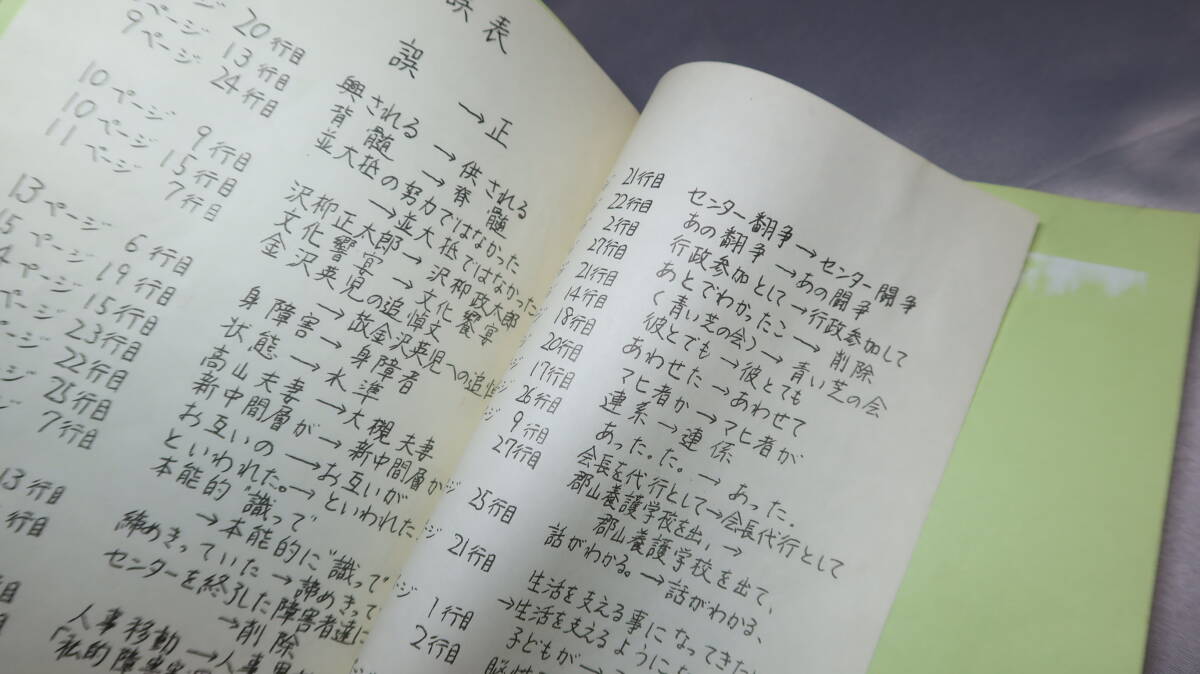 誤表
誤 → 正
ページ 20行目 興される → 供される
9ページ 13行目 背髄 → 脊髄
9ページ 24行目 並大抵の努力ではなかった → 並大抵ではなかった
10ページ 9行目 沢柳正太郎 → 沢柳政太郎
10ページ 15行目 文化響宴 → 文化饗宴
11ページ 7行目 金沢英児の追悼文 → 故金沢英児への追悼
13ページ 6行目 身障害 → 身障者
5ページ 19行目 状態 → 水準
4ページ 15行目 高山夫妻 → 大槻夫妻
ページ 23行目 新中間層が → 新中間層か
ページ 22行目 お互いの → お互いが
ージ 25行目 といわれた。→ といわれた
ジ 7行目 本能的〝識って
→ 本能的に〝識って
13行目 締めきっていた → 諦めきって
行目 センターを終了した障害者達に
→ 削除
行目 人事移動 → 人事異
「私的障害
21行目 センター翻争 → センター闘争
22行目 あの翻争 → あの闘争
2行目 行政参加として → 行政参加して
27行目 あとでわかったこ → 削除
21行目 く青い芝の会) → 青い芝の会
14行目 彼とでも → 彼とても
18行目 あわせた → あわせて
20行目 マヒ者か → マヒ者が
17行目 連系 → 連係
26行目 あった。た。→ あった。
9行目 会長を代行として → 会長代行として
27行目 郡山養護学校を出、→
郡山養護学校を出て、
25行目 話がわかる。→ 話がわかる、
21行目 生活を支える事になってきた
→ 生活を支えるように
1行目 子どもが →
2行目 脳性